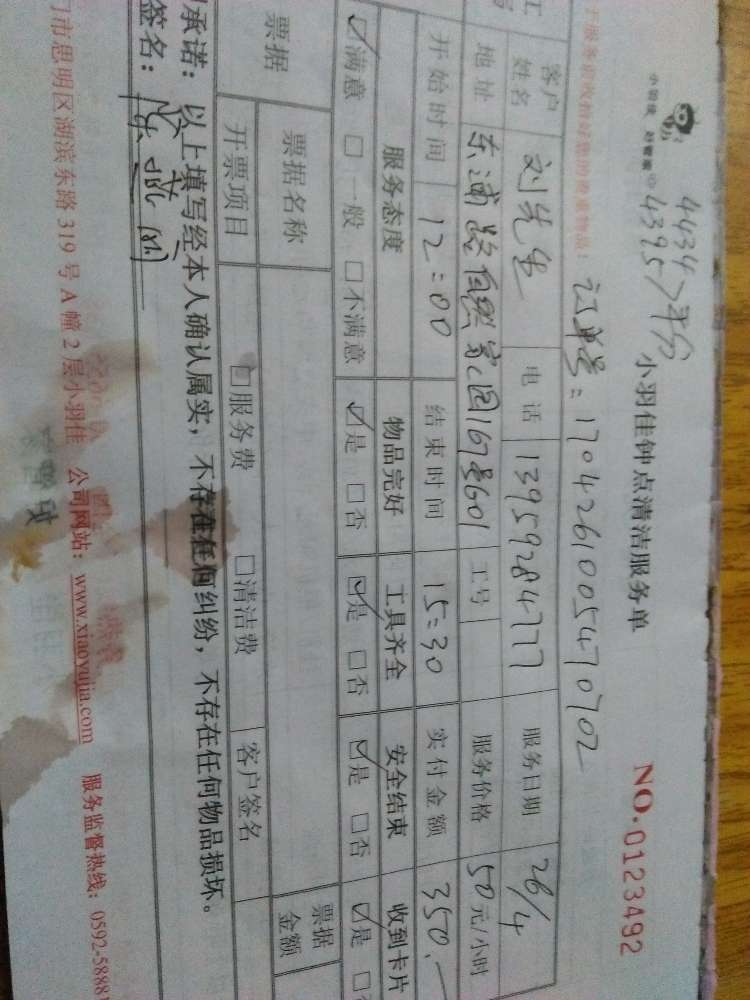 小羽佳 好管家
4434
4395 > 平分
小羽佳钟点清洁服务单
NO.0123492
订单号：17042610054 70702
客户姓名 刘先生 电话 13959284777 服务日期 26/4
地址 东浦路自然家园167号601 工号 服务价格 50元/小时
开始时间 12:00 结束时间 15:30 实付金额 350.一
服务态度 物品完好 工具齐全 安全结束 收到卡片
☑满意 □一般 □不满意 ☑是 □否 ☑是 □否 ☑是 □否 ☑是
票据 票据名称 票据金额
开票项目 □服务费 □清洁费 客户签名
承诺：以上填写经本人确认属实，不存在任何纠纷，不存在任何物品损坏。
签名：
门市思明区湖滨东路319号A幢2层小羽佳 公司网站：www.xiaoyujia.com 服务监督热线：0592-5888